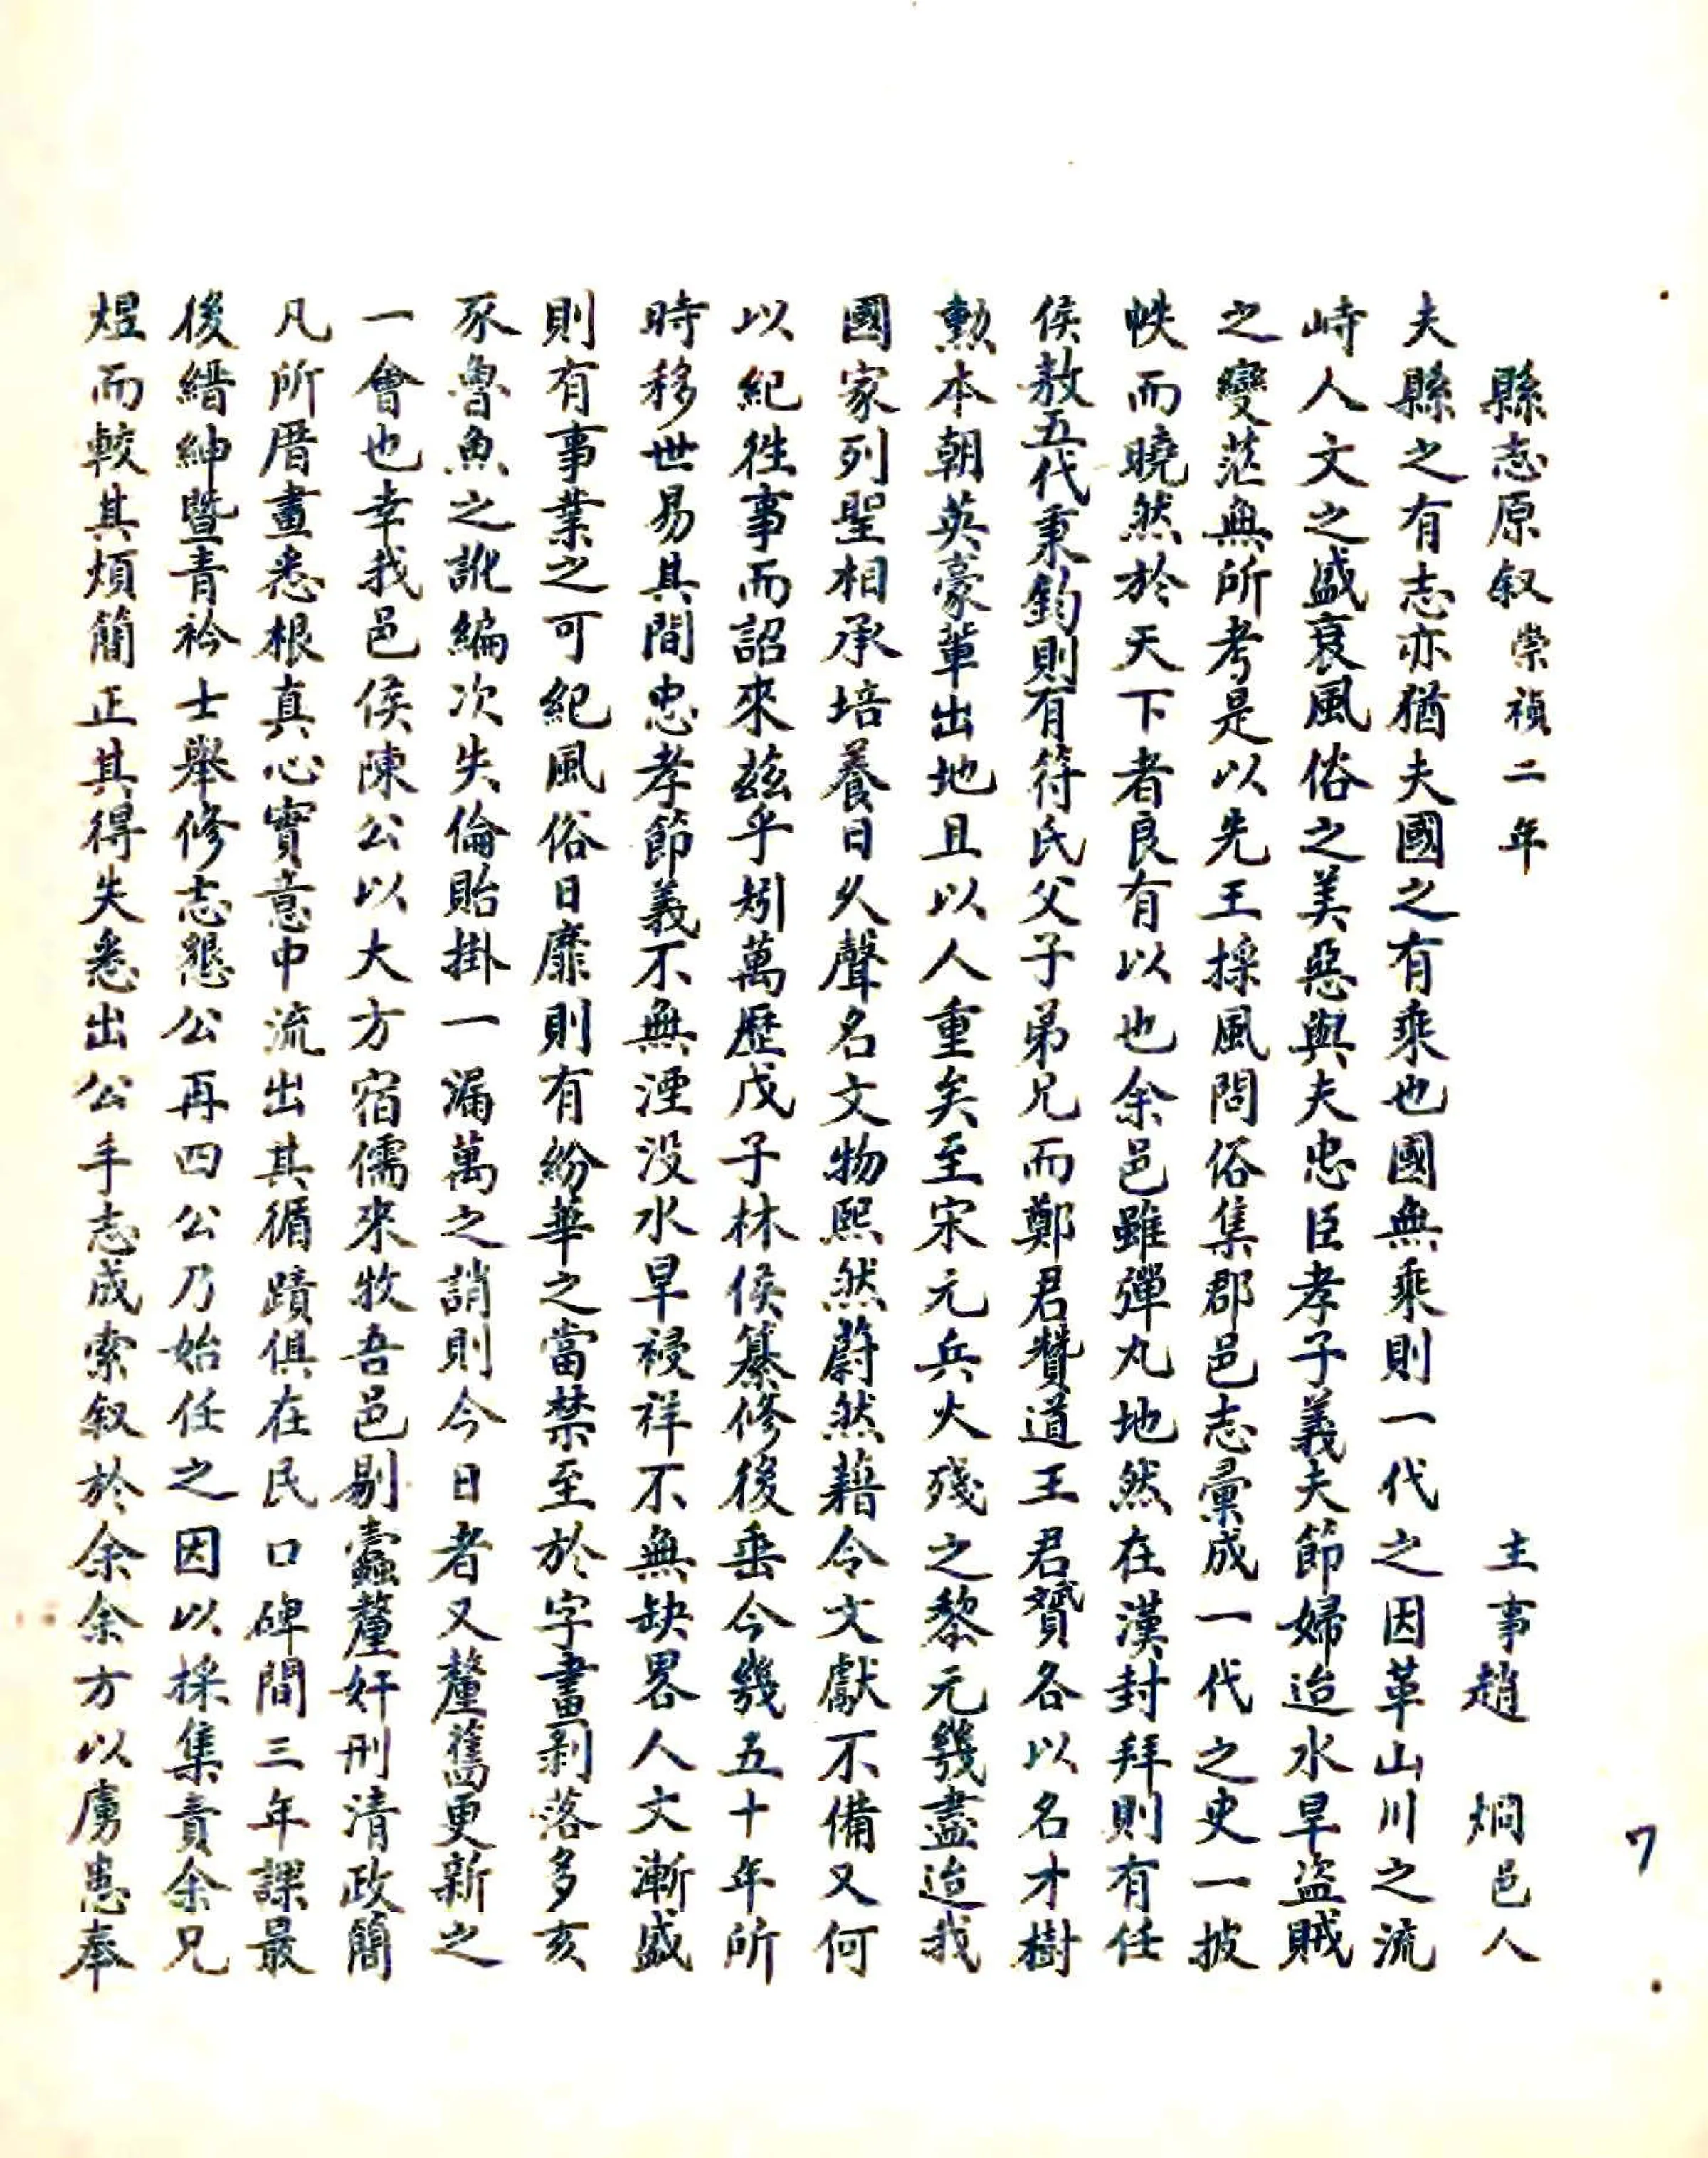 縣志原叙崇禎二年 主事趙 烱邑人
夫縣之有志亦猶夫國之有乘也國無乘則一代之因革山川之流
峙人文之盛衰風俗之美惡與夫忠臣孝子義夫節婦迨水旱盜賊
之變茫無所考是以先王採風問俗集郡邑志彙成一代之史一披
帙而曉然於天下者良有以也余邑雖彈丸地然在漢封拜則有任
侯敖五代秉鈞則有符氏父子弟兄而鄭君贊道王君贇各以名才樹
勳本朝英豪輩出地且以人重矣至宋元兵火殘之黎元幾盡迨我
國家列聖相承培養日久聲名文物熙然蔚然藉令文獻不備又何
以紀徃事而詔來兹乎矧萬歷戊子林侯纂修後垂今幾五十年所
時移世易其間忠孝節義不無湮没水旱祲祥不無缺畧人文漸盛
則有事業之可紀風俗日靡則有紛華之當禁至於字畫剥落多亥
豕魯魚之訛編次失倫貽掛一漏萬之誚則今日者又釐舊更新之
一會也幸我邑侯陳公以大方宿儒來牧吾邑剔蠹釐奸刑清政簡
凡所厝畫悉根真心實意中流出其循蹟俱在民口碑間三年課最
後縉紳暨青衿士舉修志懇公再四公乃始任之因以採集責余兄
煜而較其煩簡正其得失悉出公手志成索叙於余余方以虜患奉
7